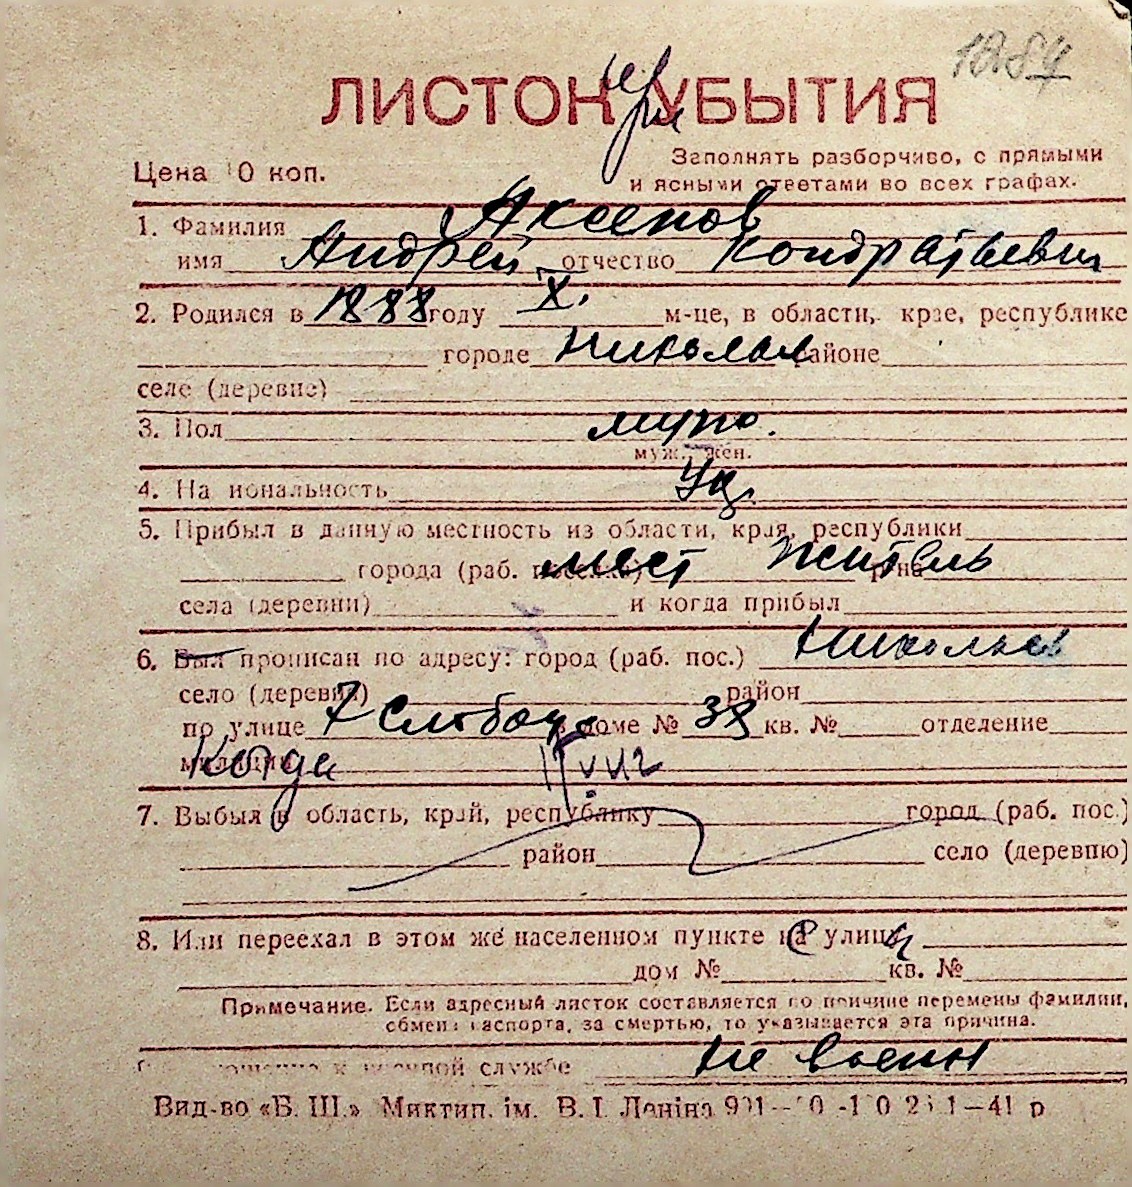 1884
ЛИСТОК УБЫТИЯ
Цена 10 коп.
Заполнять разборчиво, с прямыми
и ясными ответами во всех графах.
1. Фамилия Аксенов
имя Андрей отчество Кондратьевич
2. Родился в 1888 году X. м-це, в области, крае, республике
городе Николаев районе
селе (деревне)
3. Пол муж.
муж., жен.
4. Национальность Ук.
5. Прибыл в данную местность из области, края, республики
города (раб. поселка) мест житель р-на
села (деревни) и когда прибыл
6. Был прописан по адресу: город (раб. пос.) Николаев
село (деревня) район
по улице 7 Слобод. в доме № 38 кв. № отделение
милиции Когда
7. Выбыл в область, край, республику город (раб. пос.)
район село (деревню)
8. Или переехал в этом же населенном пункте на улицу
дом № кв. №
Примечание. Если адресный листок составляется по причине перемены фамилии,
обмена паспорта, за смертью, то указывается эта причина.
Отношение к военной службе Не военн
Вид-во «Б. Ш.» Миктип. ім. В. І. Леніна